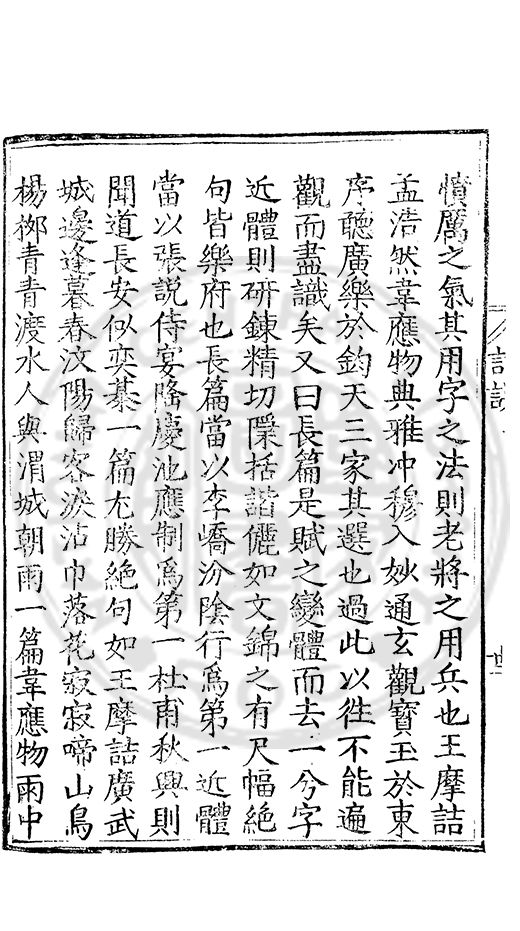 憤厲之氣其用字之法則老將之用兵也王摩詰
孟浩然韋應物典雅冲穆入妙通玄觀寳玉於東
序聽廣樂於鈞天三家其選也過此以往不能遍
觀而盡識矣又曰長篇是賦之變體而去一兮字
近體則研鍊精切隱括諧儷如文錦之有尺幅絶
句皆樂府也長篇當以李嶠汾陰行爲第一近體
當以張説侍宴隆慶池應制爲第一杜甫秋興則
聞道長安似奕棊一篇尤勝絶句如王摩詰廣武
城邊逢暮春汶陽歸客淚沾巾落花寂寂啼山鳥
楊柳青青渡水人與渭城朝雨一篇韋應物雨中